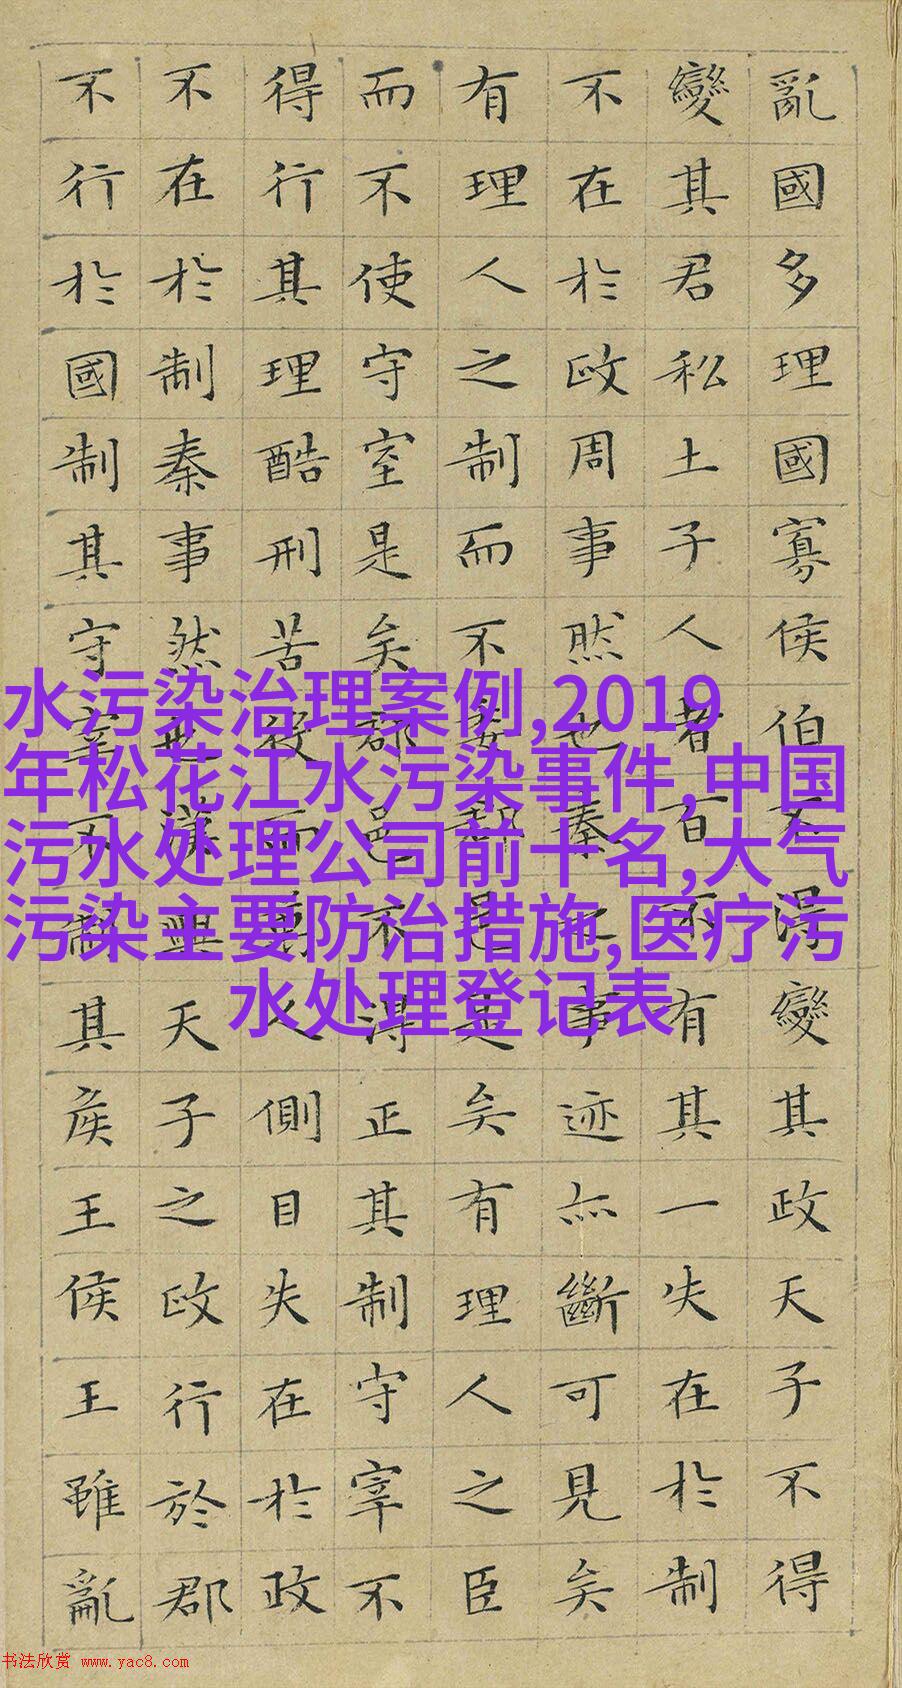 亂國多理國寡侯伯不得變其政天子不得
變其君私土子人者百不有其一失在於制
不在於政周事然也秦之事迹亦斷可見矣
有理人之制而不委郡邑是矣有理人之臣
而不使守宰是矣郡邑不得正其制守宰不
得行其理酷刑苦役而萬人側目失在於政
不在於制秦事然也漢興天子之政行於郡
不行於國制其守宰不制其侯王侯王雖亂
水污染治理案例,2019
年松花江水污染事件,中国
污水处理公司前十名,大气
污染主要防治措施,医疗污
水处理登记表
书法欣赏 www.yac8.com